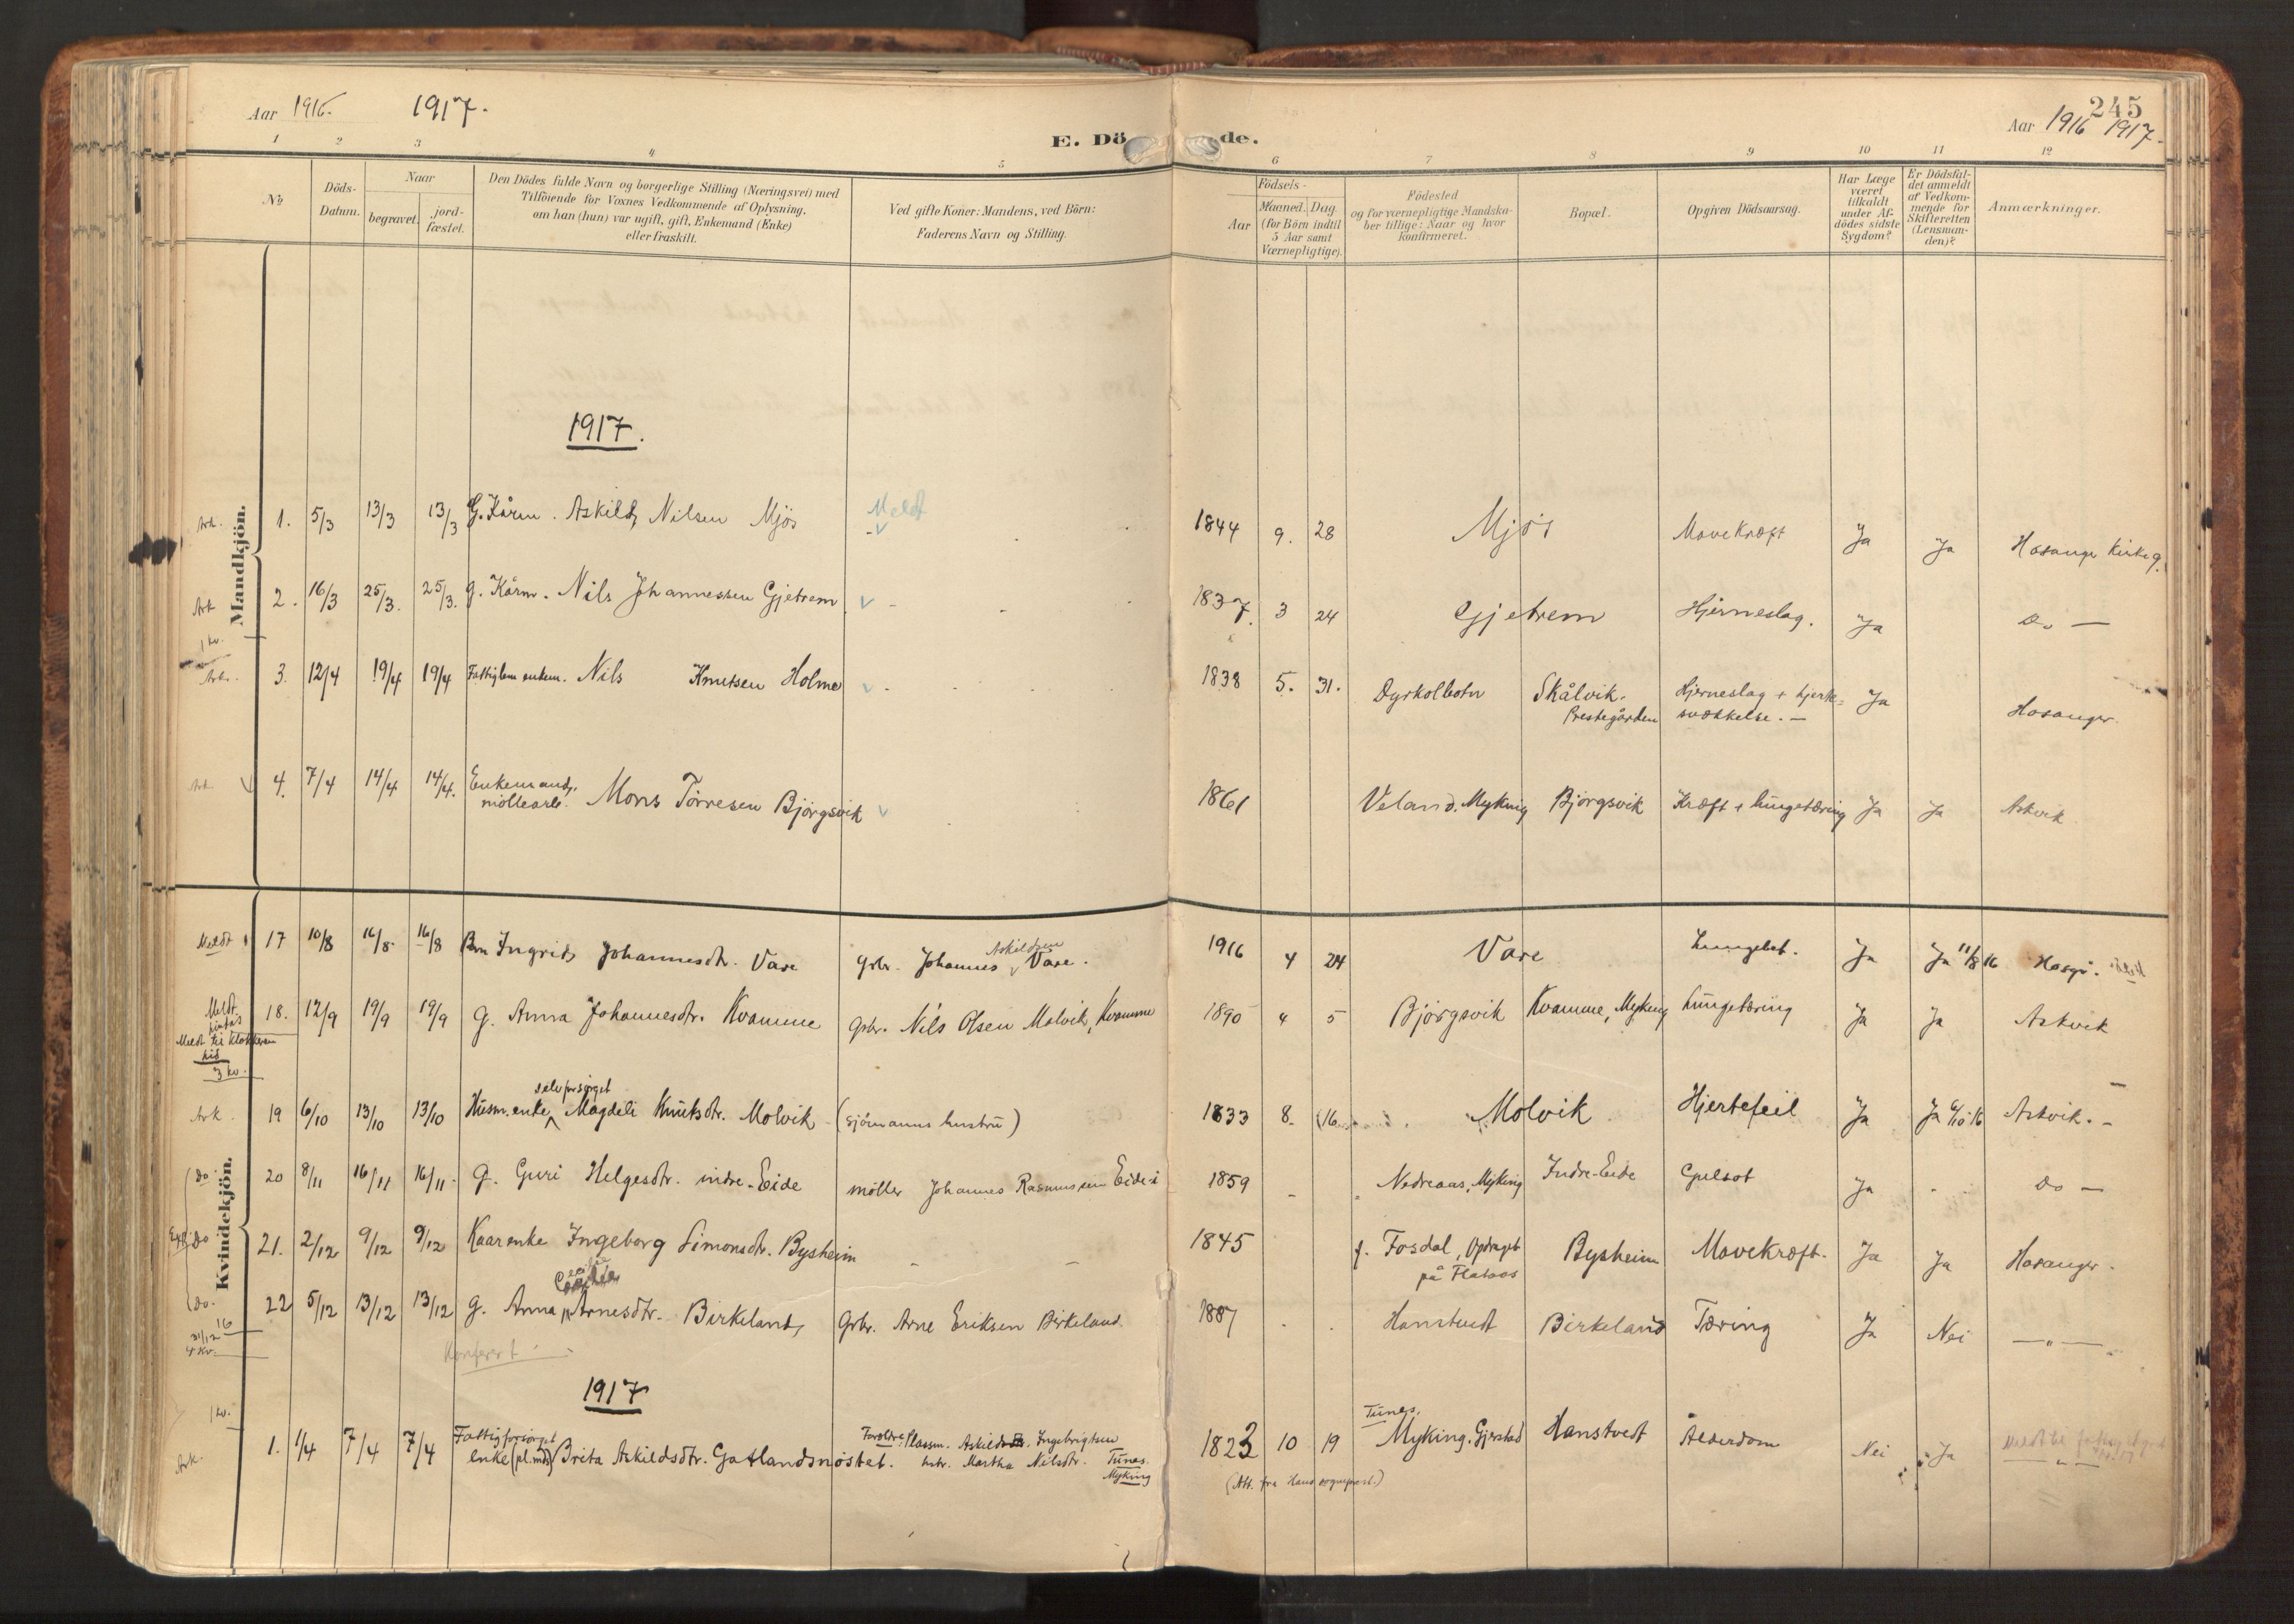 Aar 1916. 1917.
245
Aar 1916 1917.
E. Dö de.
1 2 3 4 5 6 7 8 9 10 11 12
№
Döds-
Datum.
Naar
begravet.
jord-
fæstet.
Den Dödes fulde Navn og borgerlige Stilling (Næringsvei) med
Tilföiende for Voxnes Vedkommende af Oplysning,
om han (hun) var ugift, gift, Enkemand (Enke)
eller fraskilt.
Ved gifte Koner: Mandens, ved Börn:
Faderens Navn og Stilling.
Födsels-
Aar
Maaned. Dag
(for Börn indtil
5 Aar samt
Værnepligtige).
Födested
og for værnepligtige Mandska-
ber tillige: Naar og hvor
konfirmeret.
Bopæl.
Opgiven Dödsaarsag.
Har Læge
været
tilkaldt
under Af-
dödes sidste
Sygdom?
Er Dödsfal-
det anmeldt
af Vedkom-
mende for
Skifteretten
(Lensman-
den)?
Anmærkninger.
1917.
Mandkjön.
Ark. 1. 5/3 13/3 13/3 G. Kårm. Askild Nilsen Mjös Meldt 1844 9. 28 Mjös Mavekræft Ja Ja Hosanger kirkeg.
Ark 2. 16/3 25/3. 25/3. g. Kårm. Nils Johannessen Gjetrem 1837. 3 24 Gjetrem Hjerneslag. Ja Do —
1 kv.
Ark. 3. 12/4 19/4 19/4 Fattiglem enkem. Nils Knutsen Holme 1838 5. 31. Dyrkolbotn Skålvik. Hjerneslag + hjerte= Ja Hosanger.
Prestegården svækkelse. —
Ark 4. 7/4 14/4 14/4. Enkemand,
möllearb. Mons Törresen Björgsvik 1861 Veland. Myking Björgsvik Kræft + lungetæring Ja Ja Askvik
Kvindekjön.
Meldt 17 10/8 16/8 16/8 Barn Ingrid Johannesdtr. Vare Grbr. Johannes Askildsen Vare. 1916 4 24 Vare Lungebet. Ja Ja 11/8 16 Hosgr.
Meldt 18. 12/9 19/9 19/9 g. Anna Johannesdtr. Kvamme Grbr. Nils Olsen Molvik, Kvamme 1890 4 5 Björgsvik Kvamme, Myking Lungetæring Ja Ja Askvik
Meldt til Klokkeren
hid
3 kv.
Ark. 19 6/10 13/10 13/10 Husm. enke, selvforsörget Magdeli Knutsdtr. Molvik (sjömanns hustru) 1833 8. 16 Molvik Hjertefeil Ja Ja 6/10-16 Askvik. —
Do 20 8/11 16/11 16/11. g. Guri Helgesdtr. indre-Eide möller Johannes Rasmussen Eide i 1859 - Nedreaas, Myking Indre-Eide Gulsot Ja - Do —
Do 21. 2/12 9/12 9/12 Kaarenke Ingeborg Simonsdtr. Bysheim 1845 f. Fosdal, Opdraget Bysheim Mavekræft. Ja Ja Hosanger.
på Flatöos
Do. 22 5/12 13/12 13/12 g. Anna Arnesdtr. Birkeland, Grbr. Arne Eriksen Birkeland. 1887 Hanstvedt Birkeland Tæring Ja Nei — " —
31/12 16
4 kv.
Konferert
1917
1 kv.
Ark. 1. 1/4 7/4 7/4 Fattigforsörget
enke (pl.md) Brita Askildsdtr. Gatlandsnöstet. Foreldre: Plassm. Askild Ingebrigtsen
hstr. Martha Nilsdtr. Tunes.
Myking
1823 10 19 Tunes, Myking. Gjerstad Hanstvedt Alderdom Nei Ja
(Att. fra Haus sogneprest.)